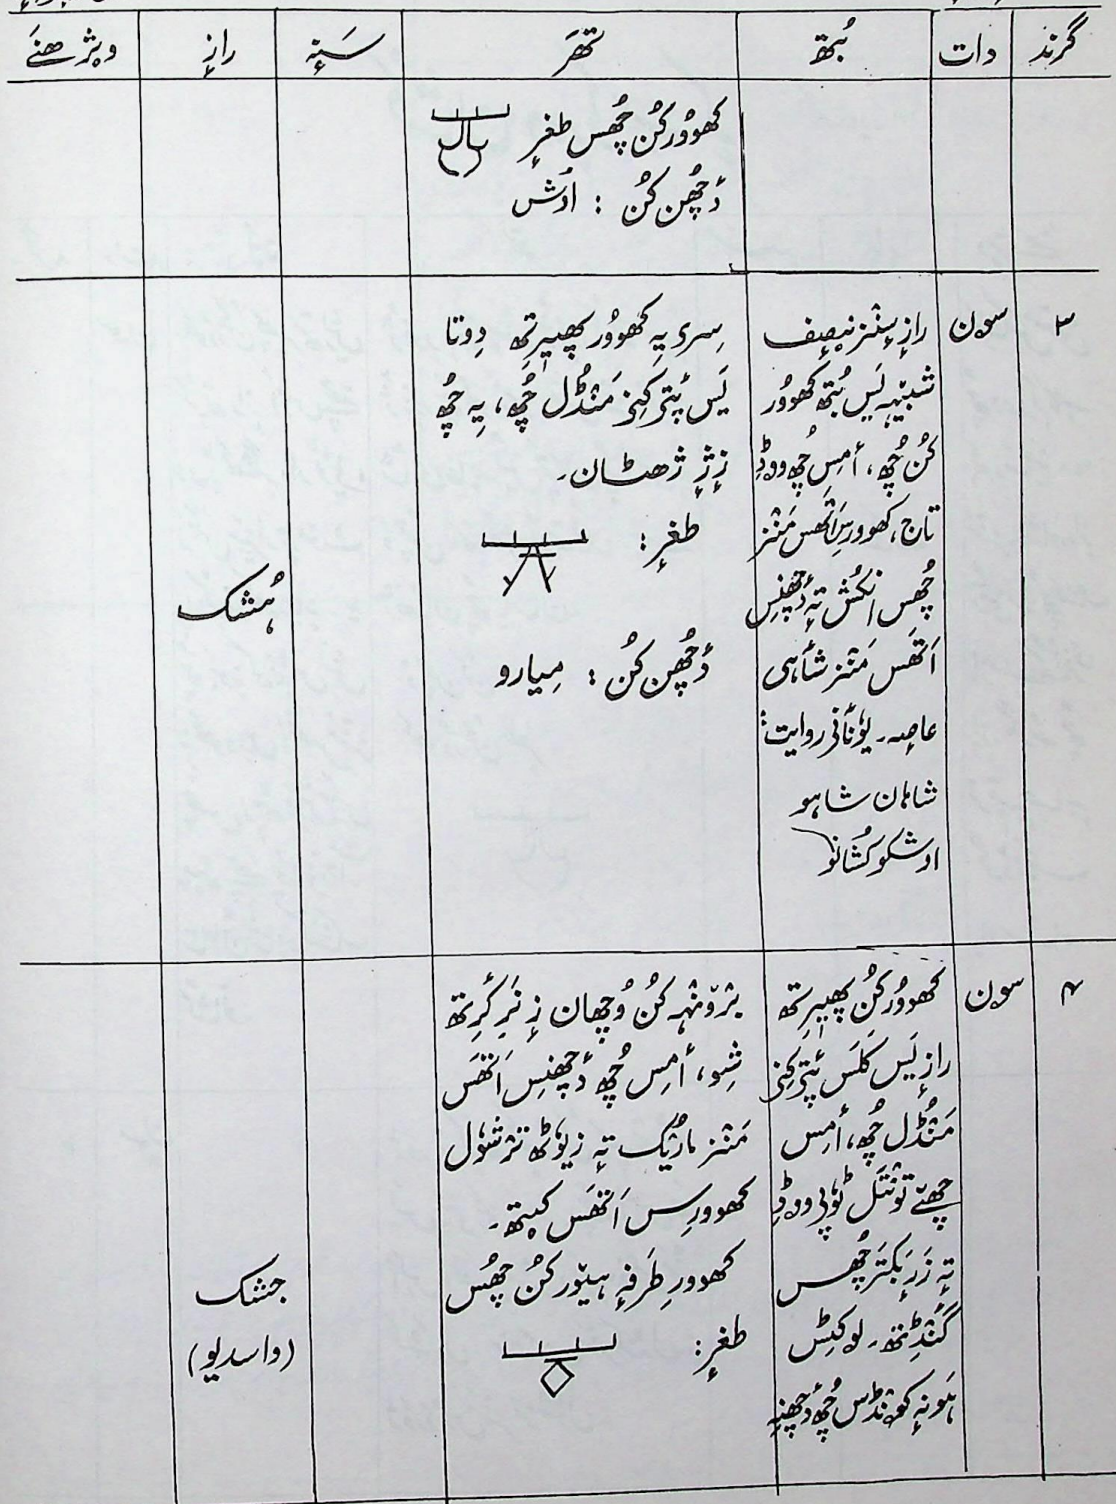 گرند دات بُتھ تھَر سَنہٕ رازٕ ویژھنَے
کھوٚوُرکُن چُھس طغرٕ
دٔچھُن کُن : ادُش
۳ سۄن
رازٕ سٕنٛز نصٕف
شبیٖہہ یَس بُتھ کھوٚوُر
کُن چُھ، أمِس چُھ ووڈِ
تاج، کھوورِس اَتھس مَنٛز
چُھس انکُش تہٕ دٔچھنِس
اَتھس مَنٛز شأہی
عاصہ۔ یوٗنأنی روایت:
شاہان شاہو
ادشکو کُشانو
سِری یہِ کھوٚوُر پھیٖرتھ دِوتا
یَس پٔتۍ کِنۍ مَنٛڈُل چُھ، یہِ چُھ
زٕژٕ ژھٹان۔
طغرٕ :
دٔچھُن کُن : مِیارو
ہُشک
۴ سۄن
کھوٚوُر کُن پھیٖرِتھ
رازٕ یَس کَلَس پٔتۍ کِنۍ
مَنٛڈُل چُھ، أمِس
چھےٚ تونتَل ٹوٗپۍ ووڈِ
تہٕ زَرٕ بَکتَر چُھس
گٔنٛڈِتھ۔ لوکٹِس
ہَونہٕ کۄنٛڈس چُھ دٔچھنہِ
برٛونٛہہ کُن وُچھان زٕ نَرِ کٔرِتھ
شِو، أمِس چُھ دٔچھنِس اَتھَس
مَنٛز تہٕ زیوٗٹھ ترشوٗل
کھوورِس اَتھَس کیٚتھ۔
کھوورِ طَرفہٕ ہیوٚر کُن چُھس
طغرٕ :
جشک
(واسدیو)